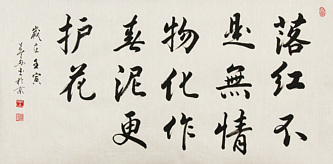 落红不
是無情
物化作
春泥更
护花
岁在壬寅
书於京